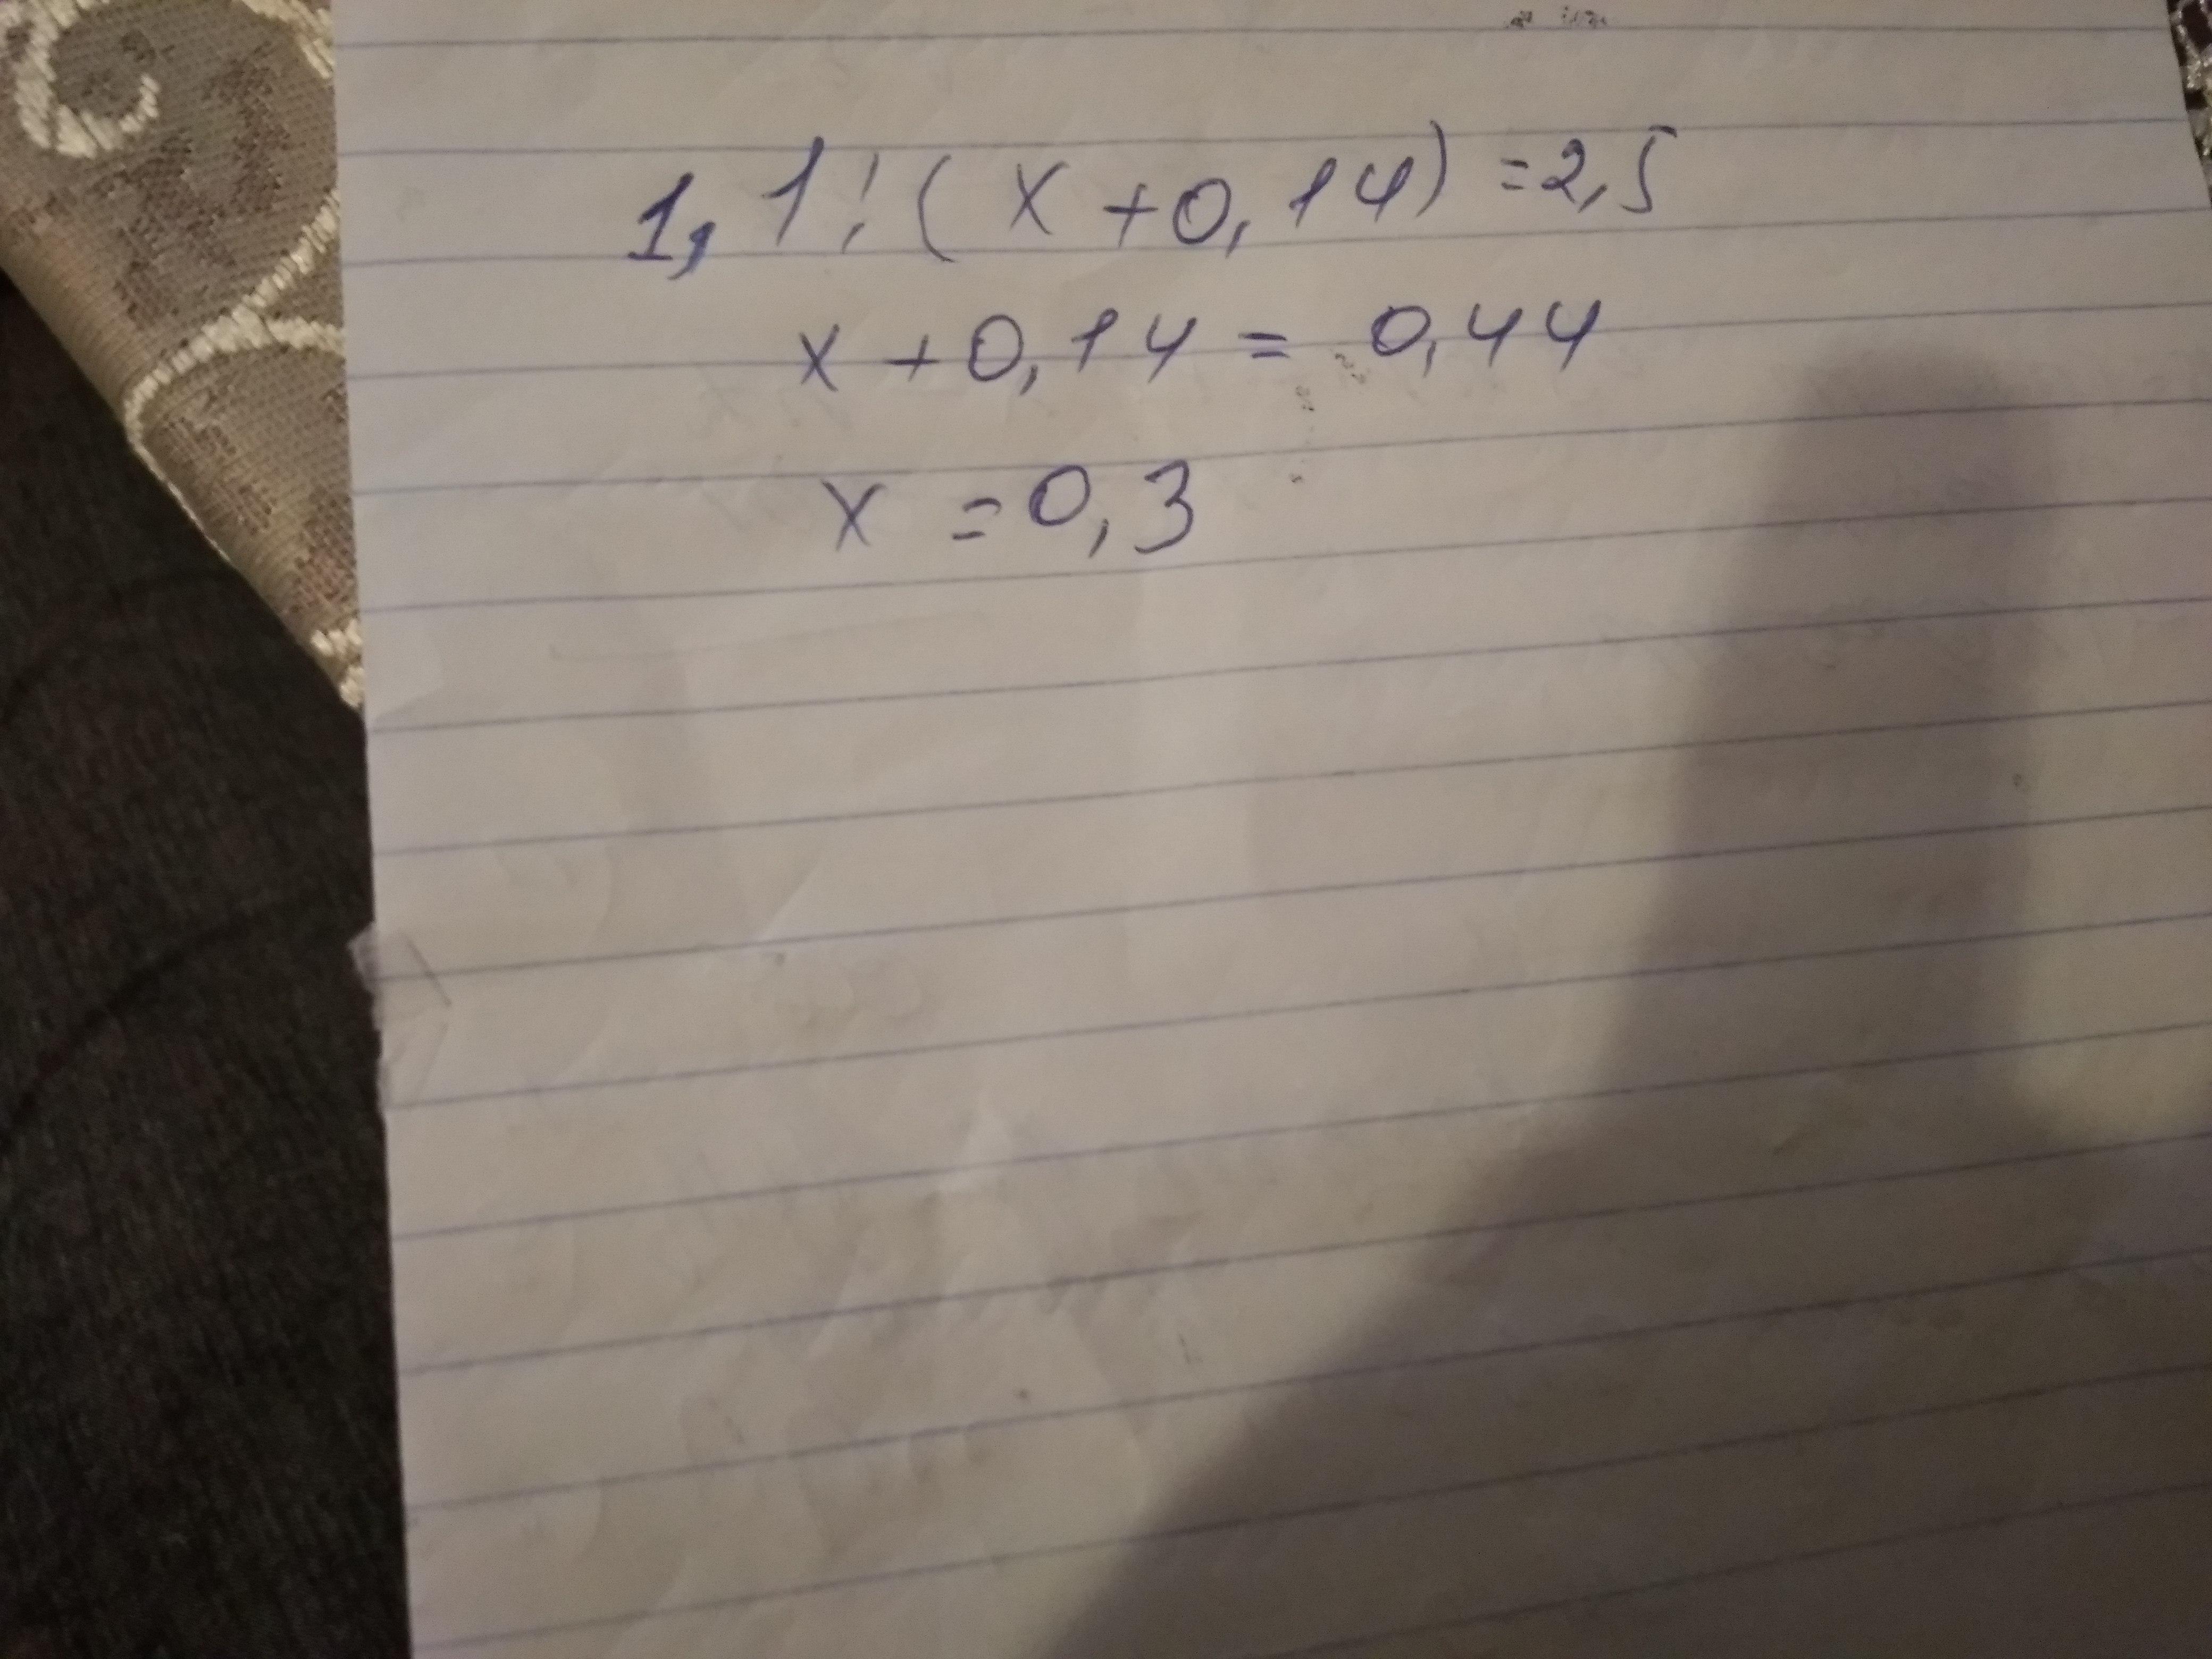 1,1:(x+0,14)=2,5
x+0,14=0,44
x=0,3